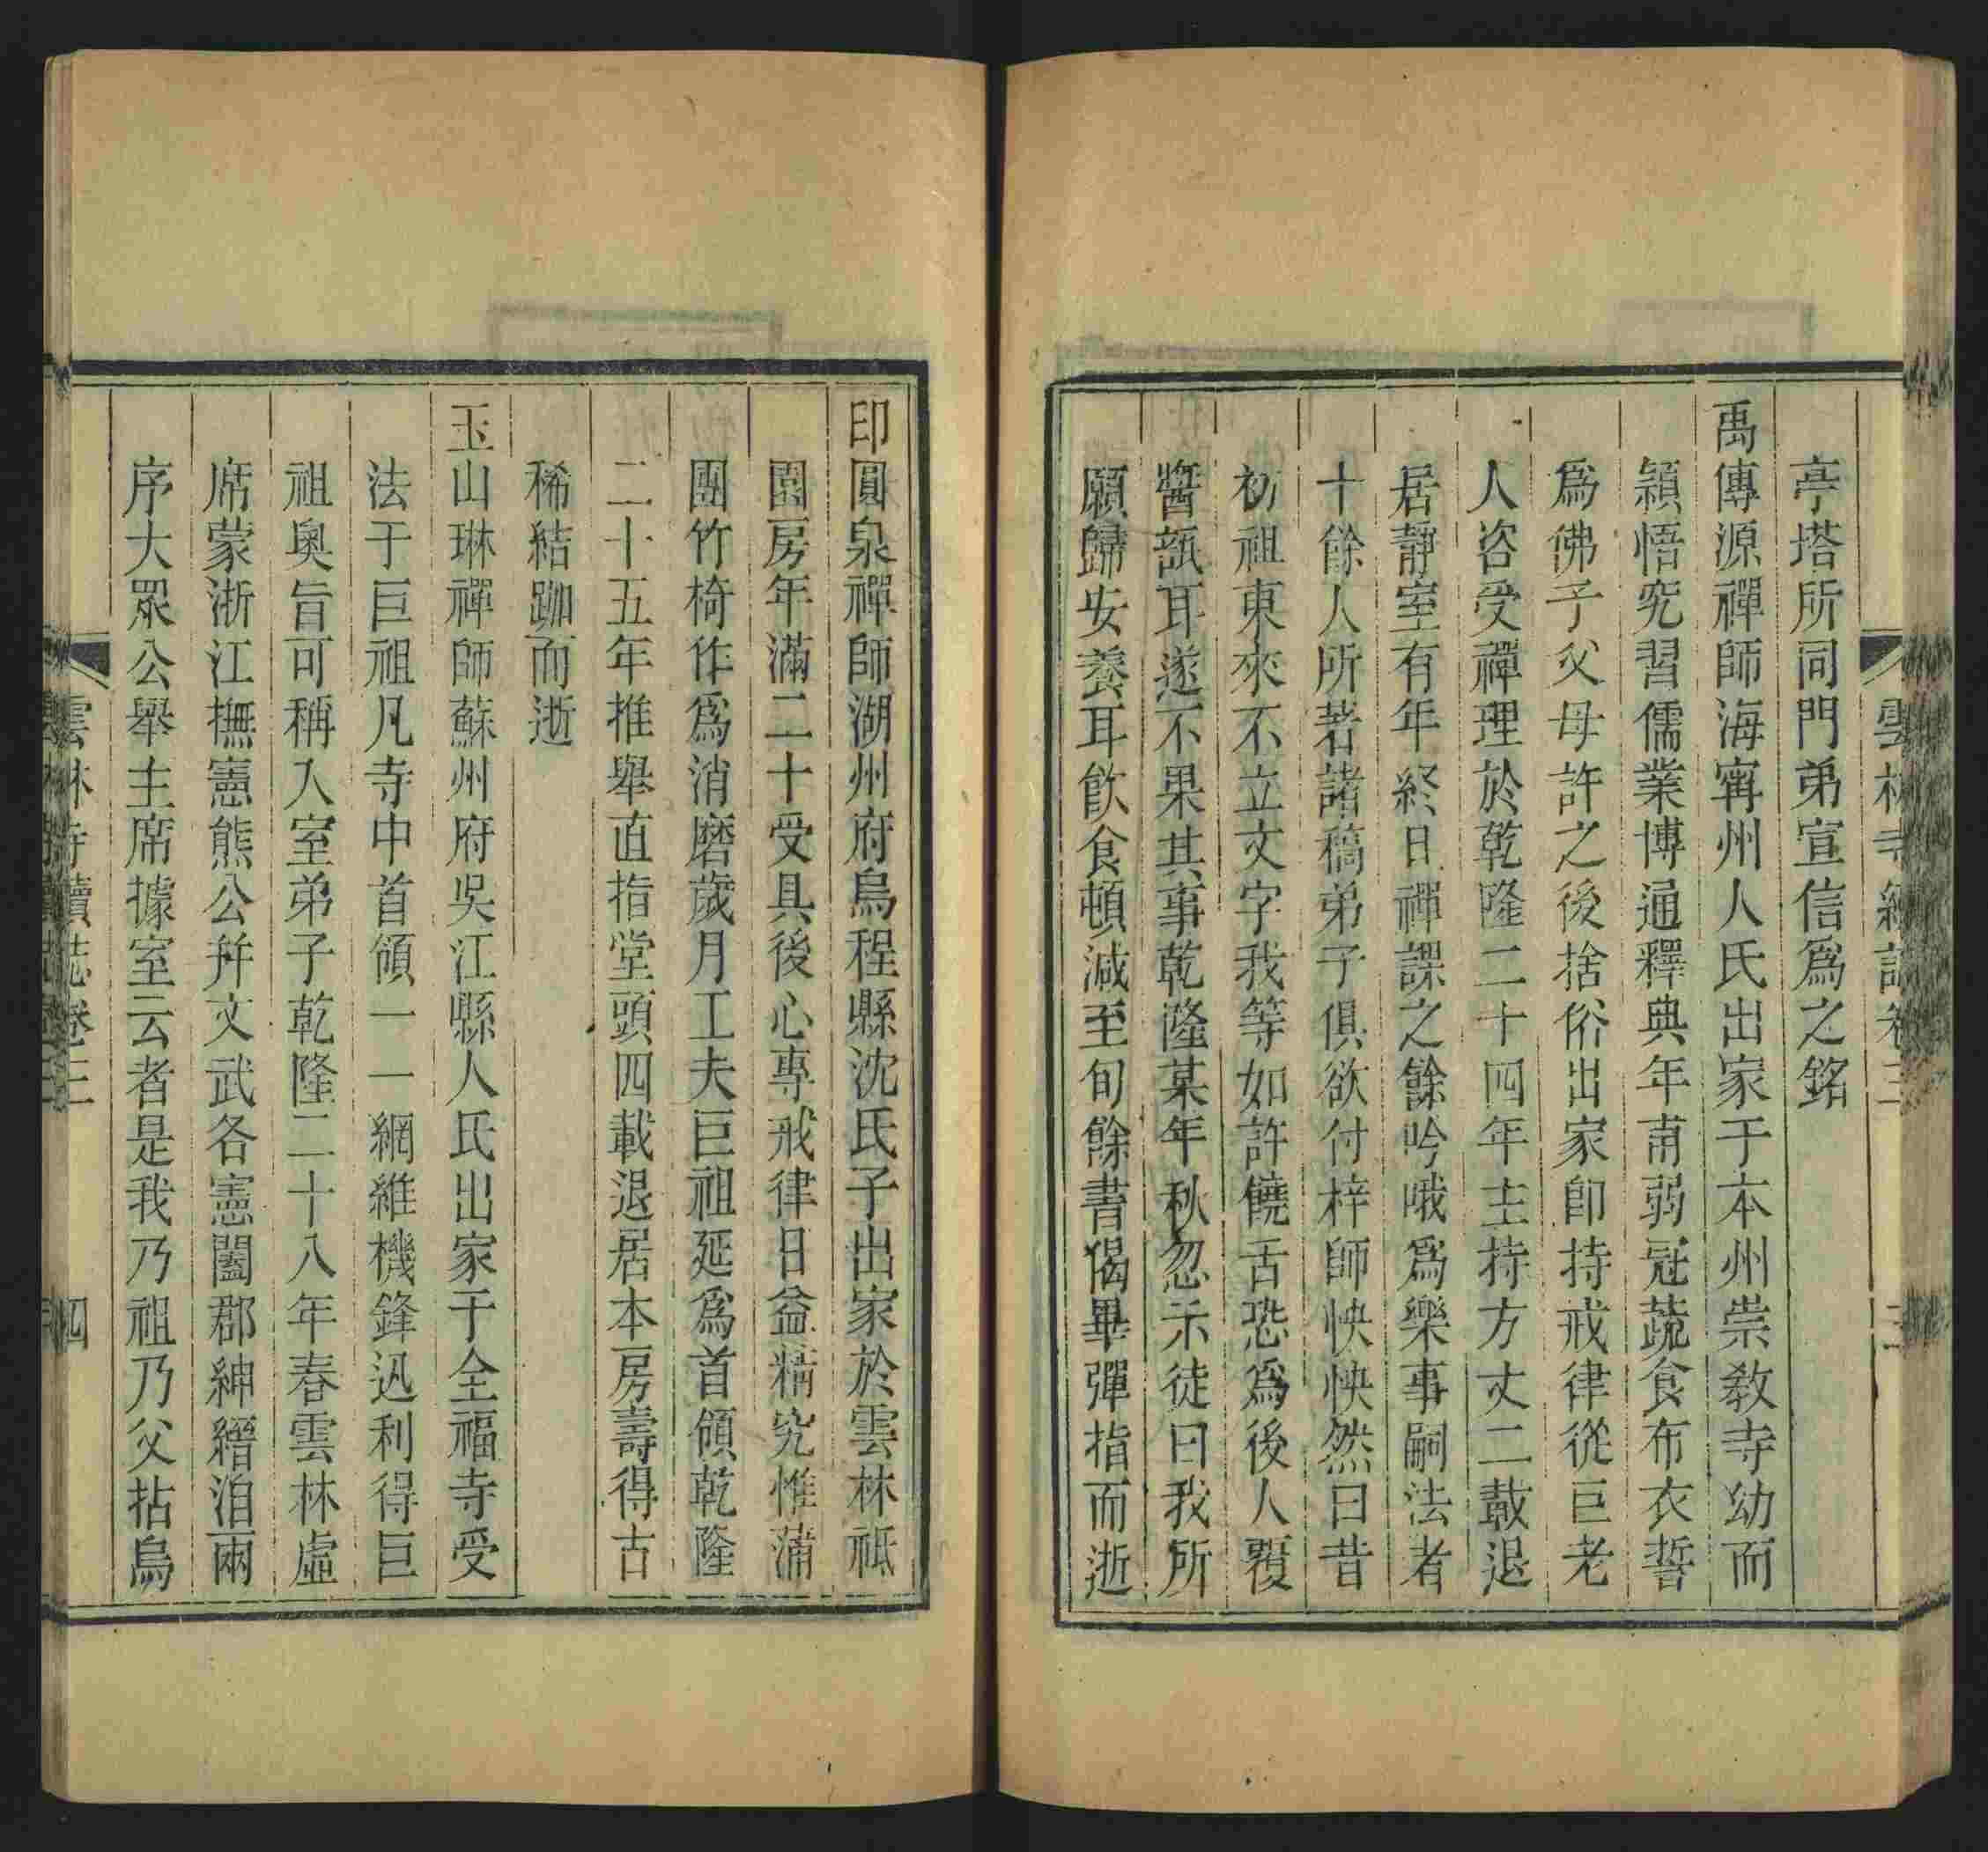 雲林寺續誌卷三 三
亭塔所同門弟宣信爲之銘
禹傳源禪師海甯州人氏出家于本州崇教寺幼而
穎悟究習儒業博通釋典年甫弱冠蔬食布衣誓
爲佛子父母許之後捨俗出家卽持戒律從巨老
人咨受禪理於乾隆二十四年主持方丈二載退
居靜室有年終日禪課之餘吟哦爲樂事嗣法者
十餘人所著諸稿弟子俱欲付梓師怏怏然曰昔
初祖東來不立文字我等如許饒舌恐爲後人覆
醬瓿耳遂不果其事乾隆某年秋忽示徒曰我所
願歸安養耳飮食頓減至旬餘書偈畢彈指而逝
印圓泉禪師湖州府烏程縣沈氏子出家於雲林祗
園房年滿二十受具後心專戒律日益精究惟蒲
團竹椅作爲消磨歲月工夫巨祖延爲首領乾隆
二十五年推舉直指堂頭四載退居本房壽得古
稀結跏而逝
玉山琳禪師蘇州府吳江縣人氏出家于全福寺受
法于巨祖凡寺中首領一一網維機鋒迅利得巨
祖奧旨可稱入室弟子乾隆二十八年春雲林虛
席蒙浙江撫憲熊公幷文武各憲闔郡紳縉洎兩
序大眾公舉主席據室云者是我乃祖乃父拈烏
雲林寺續誌卷三 四